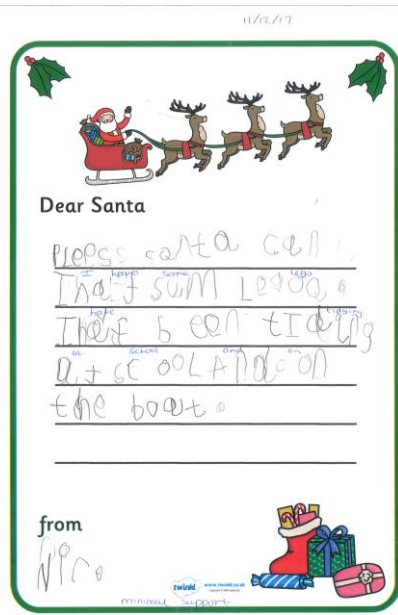 11/12/17
Dear Santa
pleess santa can
I have some lego
I haf sum Legoo.
have tidying
I haf been tIdIng
at school and on
at scoolAnd on
the boat.
from
Nico
twinkl www.twinkl.co.uk
minimal support